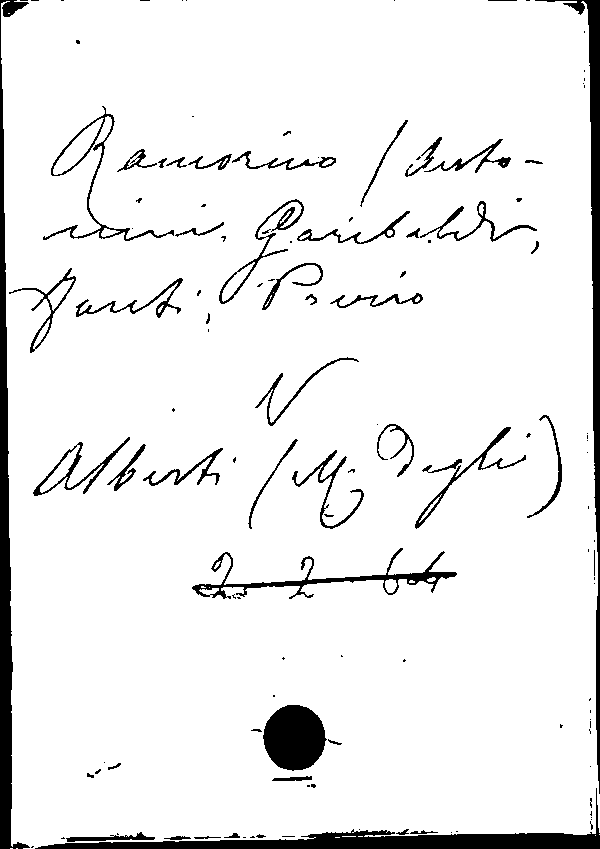 Ramorino / Anto-
nini, Garibaldi,
Fanti, Pivino
V
Alberti (M. Degli)
2 2 64